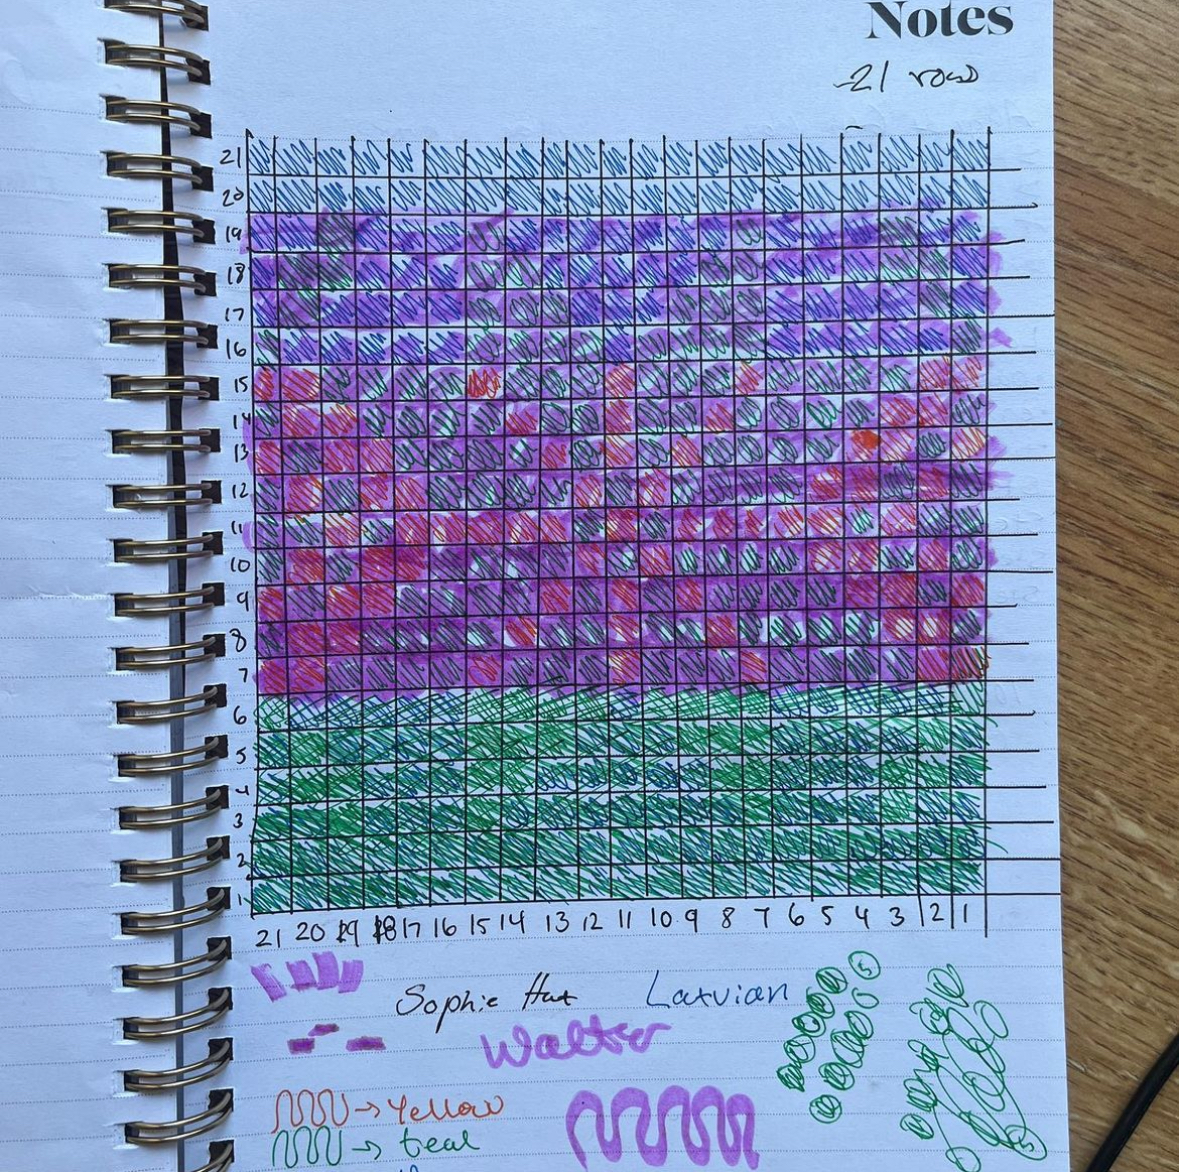 Notes
-21 rows
21
20
19
18
17
16
15
14
13
12
11
10
9
8
7
6
5
4
3
2
1
21 20 19 18 17 16 15 14 13 12 11 10 9 8 7 6 5 4 3 2 1
Sophie Hat Latvian
5
Walter
→ Yellow
→ teal
5